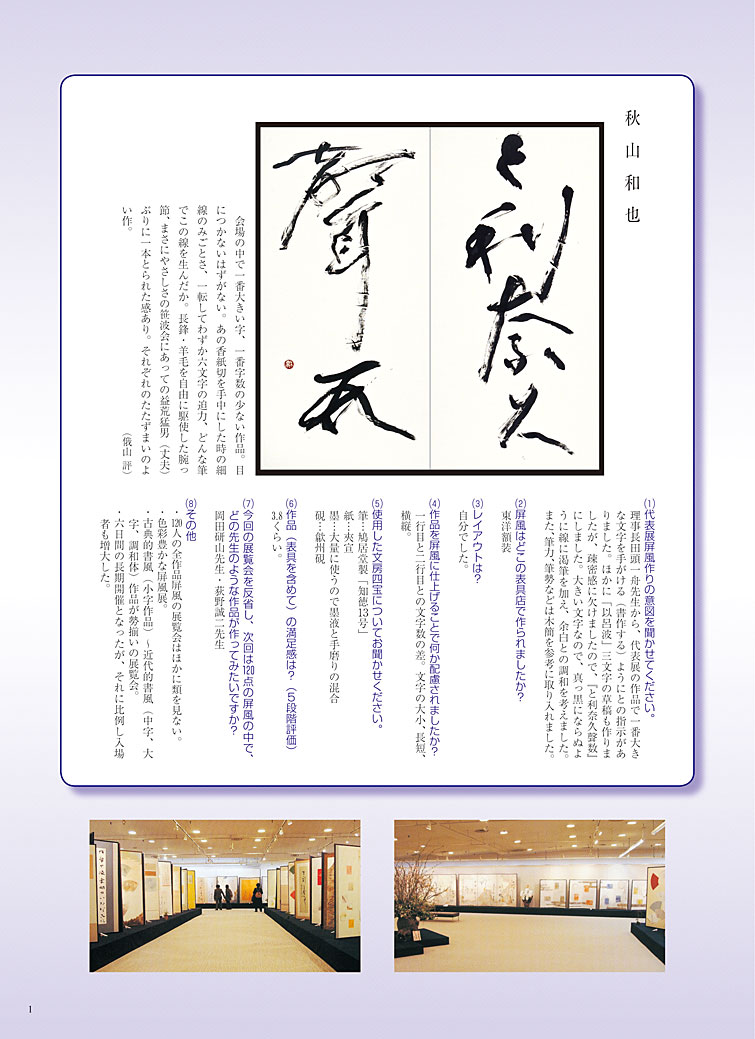 秋山和也
と利奈久
聲数
　会場の中で一番大きい字、一番字数の少ない作品。目
につかないはずがない。あの香紙切を手中にした時の細
線のみごとさ、一転してわずか六文字の迫力、どんな筆
でこの線を生んだか。長鋒・羊毛を自由に駆使した腕っ
節、まさにやさしさの笹波会にあっての益荒猛男（丈夫）
ぶりに一本とられた感あり。それぞれのたたずまいのよ
い作。
（俄山 評）
(1)代表展屏風作りの意図を聞かせてください。
理事長田頭一舟先生から、代表展の作品で一番大き
な文字を手がける（書作する）ようにとの指示があ
りました。ほかに「以呂波」三文字の草稿も作りま
したが、疎密感に欠けましたので、「と利奈久聲数」
にしました。大きい文字なので、真っ黒にならぬよ
うに線に渇筆を加え、余白との調和を考えました。
また、筆力、筆勢などは木簡を参考に取り入れました。
(2)屏風はどこの表具店で作られましたか？
東洋額装
(3)レイアウトは？
自分でした。
(4)作品を屏風に仕上げることで何か配慮されましたか？
一行目と二行目との文字数の差。文字の大小、長短、
横縦。
(5)使用した文房四宝についてお聞かせください。
筆…鳩居堂製「知徳13号」
紙…夾宣
墨…大量に使うので墨液と手磨りの混合
硯…歙州硯
(6)作品（表具を含めて）の満足感は？（5段階評価）
3.8くらい。
(7)今回の展覧会を反省し、次回は120点の屏風の中で、
どの先生のような作品が作ってみたいですか？
岡田研山先生・荻野誠二先生
(8)その他
・120人の全作品屏風の展覧会はほかに類を見ない。
・色彩豊かな屏風展。
・古典的書風（小字作品）～近代的書風（中字、大
字、調和体）作品が勢揃いの展覧会。
・六日間の長期開催となったが、それに比例し入場
者も増大した。
1